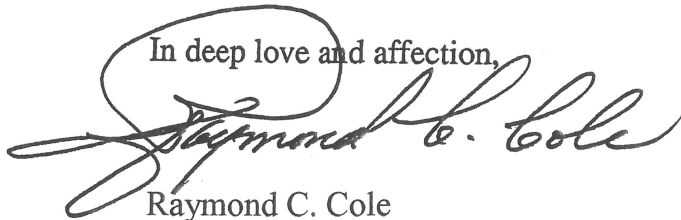 In deep love and affection,
Raymond C. Cole
Raymond C. Cole